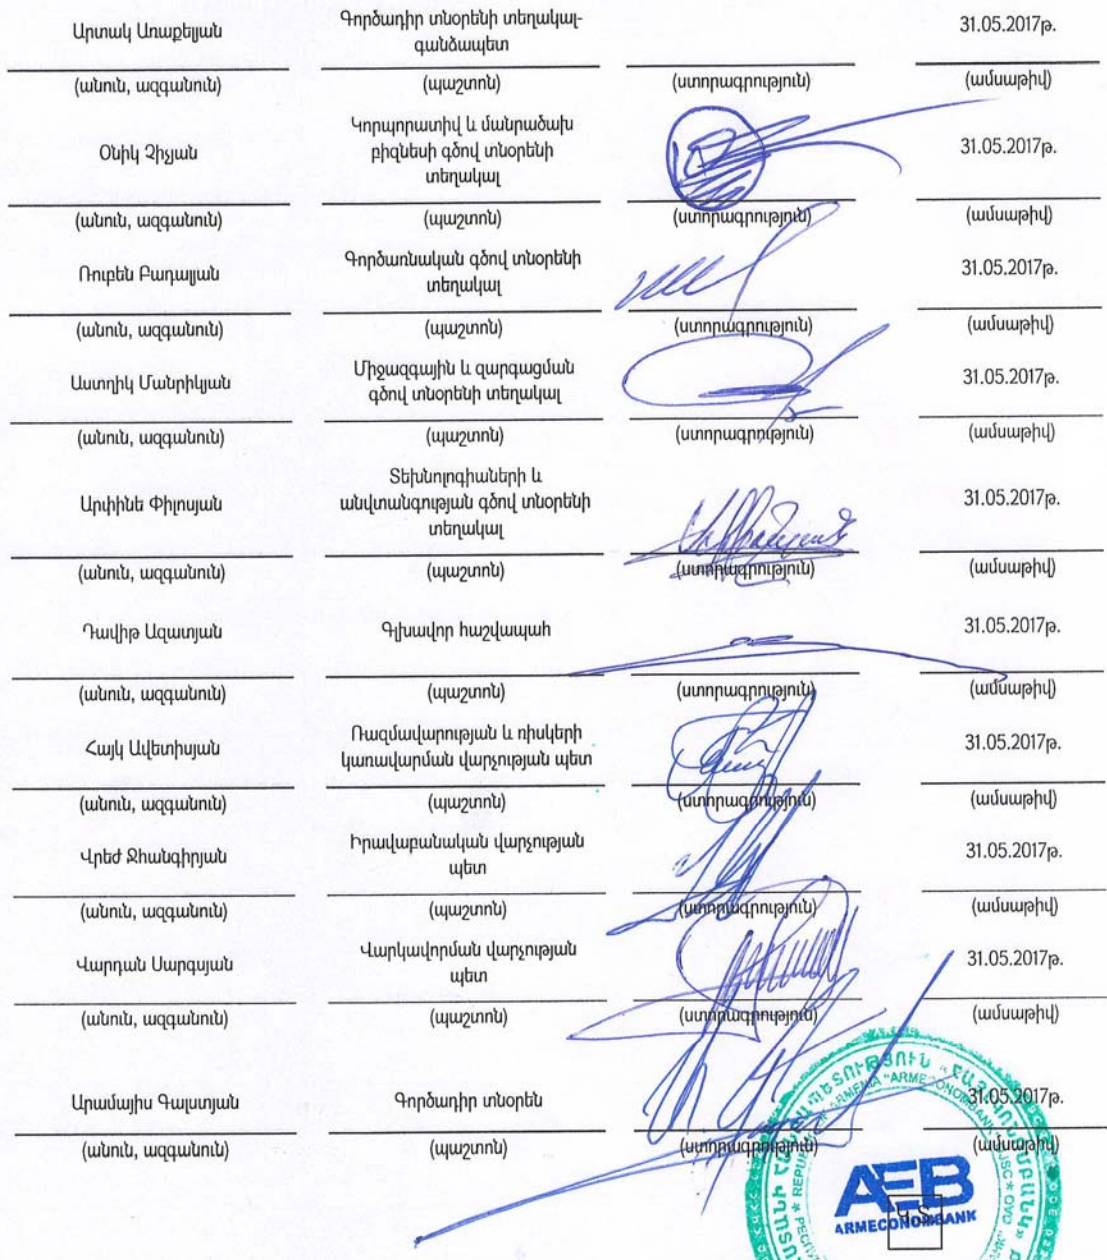 Արտակ Առաքելյան
Գործադիր տնօրենի տեղակալ-
գանձապետ
31.05.2017թ.
(անուն, ազգանուն) (պաշտոն) (ստորագրություն) (ամսաթիվ)
Օնիկ Չիչյան
Կորպորատիվ և մանրածախ
բիզնեսի գծով տնօրենի
տեղակալ
31.05.2017թ.
(անուն, ազգանուն) (պաշտոն) (ստորագրություն) (ամսաթիվ)
Ռուբեն Բադալյան
Գործառնական գծով տնօրենի
տեղակալ
31.05.2017թ.
(անուն, ազգանուն) (պաշտոն) (ստորագրություն) (ամսաթիվ)
Աստղիկ Մանրիկյան
Միջազգային և զարգացման
գծով տնօրենի տեղակալ
31.05.2017թ.
(անուն, ազգանուն) (պաշտոն) (ստորագրություն) (ամսաթիվ)
Արփինե Փիլոսյան
Տեխնոլոգիաների և
անվտանգության գծով տնօրենի
տեղակալ
31.05.2017թ.
(անուն, ազգանուն) (պաշտոն) (ստորագրություն) (ամսաթիվ)
Դավիթ Ազատյան
Գլխավոր հաշվապահ
31.05.2017թ.
(անուն, ազգանուն) (պաշտոն) (ստորագրություն) (ամսաթիվ)
Հայկ Ավետիսյան
Ռազմավարության և ռիսկերի
կառավարման վարչության պետ
31.05.2017թ.
(անուն, ազգանուն) (պաշտոն) (ստորագրություն) (ամսաթիվ)
Վրեժ Ջհանգիրյան
Իրավաբանական վարչության
պետ
31.05.2017թ.
(անուն, ազգանուն) (պաշտոն) (ստորագրություն) (ամսաթիվ)
Վարդան Սարգսյան
Վարկավորման վարչության
պետ
31.05.2017թ.
(անուն, ազգանուն) (պաշտոն) (ստորագրություն) (ամսաթիվ)
Արամայիս Գալստյան
Գործադիր տնօրեն
31.05.2017թ.
(անուն, ազգանուն) (պաշտոն) (ստորագրություն) (ամսաթիվ)
AEB
ARMECONOMBANK
Կ.Տ.